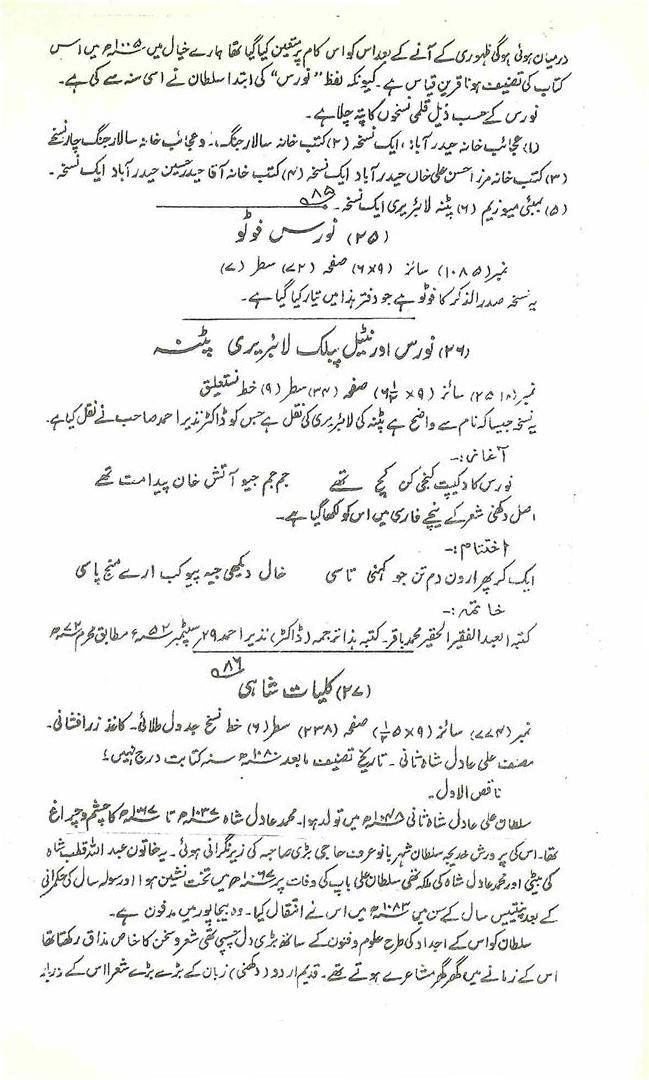 درمیان ہوئی ہوگی ظہوری کے آنے کے بعد اس کو اس کام پر متعین کیا گیا تھا ہمارے خیال میں ۱۰۰۵ھ میں اس
کتاب کی تصنیف ہونا قرین قیاس ہے۔ کیونکہ لفظ "نورس" کی ابتدا سلطان نے اسی سنہ سے کی ہے۔
نورس کے حسب ذیل قلمی نسخوں کا پتہ چلا ہے۔
(۱) عجائب خانہ حیدرآباد، ایک نسخہ (۲) کتب خانہ سالار جنگ، وعجائب خانہ سالار جنگ چار نسخے
(۳) کتب خانہ مرزا حسن علی خاں حیدرآباد ایک نسخہ (۴) کتب خانہ آقا حیدر حسین حیدرآباد ایک نسخہ۔
(۵) بمبئی میوزیم (۶) پٹنہ لائبریری ایک نسخہ۔
۸۵
(۲۵) نورس فوٹو
نمبر (۱۰۸۵) سائز (۹×۶) صفحہ (۷۲) سطر (۷)
یہ نسخہ صدر الذکر کا فوٹو ہے جو دفتر ہذا میں تیار کیا گیا ہے۔
(۲۶) نورس اورنٹیل پبلک لائبریری پٹنہ
نمبر (۲۵۱۰) سائز (۹ × ۶½) صفحہ (۳۴) سطر (۹) خط نستعلیق
یہ نسخہ جیسا کہ نام سے واضح ہے پٹنہ کی لائبریری کی نقل ہے جس کو ڈاکٹر نذیر احمد صاحب نے نقل کیا ہے۔
آغاز:-
نورس کا دکیپت کنجی کن کچ تھے جم جم جیو آتش خان پیدا مت تھے
اصل دکنی شعر کے نیچے فارسی میں اس کو لکھا گیا ہے۔
اختتام:-
ایک کر پھر ارون دم تن جو کہنی تاسی خال دیکھی جیہ پیو کب ارے منج پاسی
خاتمہ:-
کتبہ العبد الفقیر الحقیر محمد باقر۔ کتبہ ہذا ترجمہ (ڈاکٹر) نذیر احمد ۲۹ ستمبر ۵۲ء مطابق محرم ۷۲ھ
۸۶
(۲۷) کلیات شاہی
نمبر (۷۷۴) سائز (۹×۵½) صفحہ (۲۳۸) سطر (۶) خط نسخ جدول طلائی۔ کاغذ زر افشانی۔
مصنف علی عادل شاہ ثانی۔ تاریخ تصنیف مابعد ۱۰۸۰ھ سنہ کتابت درج نہیں
ناقص الاول۔
سلطان علی عادل شاہ ثانی ۱۰۴۸ھ میں تولد ہوا۔ محمد عادل شاہ ۱۰۳۷ھ تا ۱۰۶۷ھ کا چشم و چراغ
تھا۔ اس کی پرورش خدیجہ سلطان شہر بانو عرف حاجی بڑی صاحبہ کی زیر نگرانی ہوئی۔ یہ خاتون عبداللہ قطب شاہ
کی بیٹی اور محمد عادل شاہ کی ملکہ تھی سلطان علی باپ کی وفات پر ۱۰۶۷ھ میں تخت نشین ہوا اور سولہ سال کی حکمرانی
کے بعد پینتیس سال کے سن میں ۱۰۸۳ھ میں اس نے انتقال کیا۔ وہ بیجاپور میں مدفون ہے۔
سلطان کو اس کے اجداد کی طرح علوم و فنون کے ساتھ بڑی دلچسپی تھی شعر و سخن کا خاص مذاق رکھتا تھا
اس کے زمانے میں گھر گھر مشاعرے ہوتے تھے۔ قدیم اردو (دکھنی) زبان کے بڑے بڑے شعرا اس کے دربار